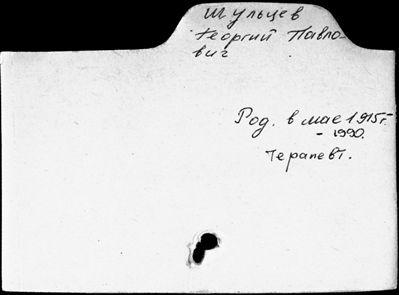 Шульцев
Георгий Павло-
вич
Род. в мае 1915г.
- 1990.
Терапевт.